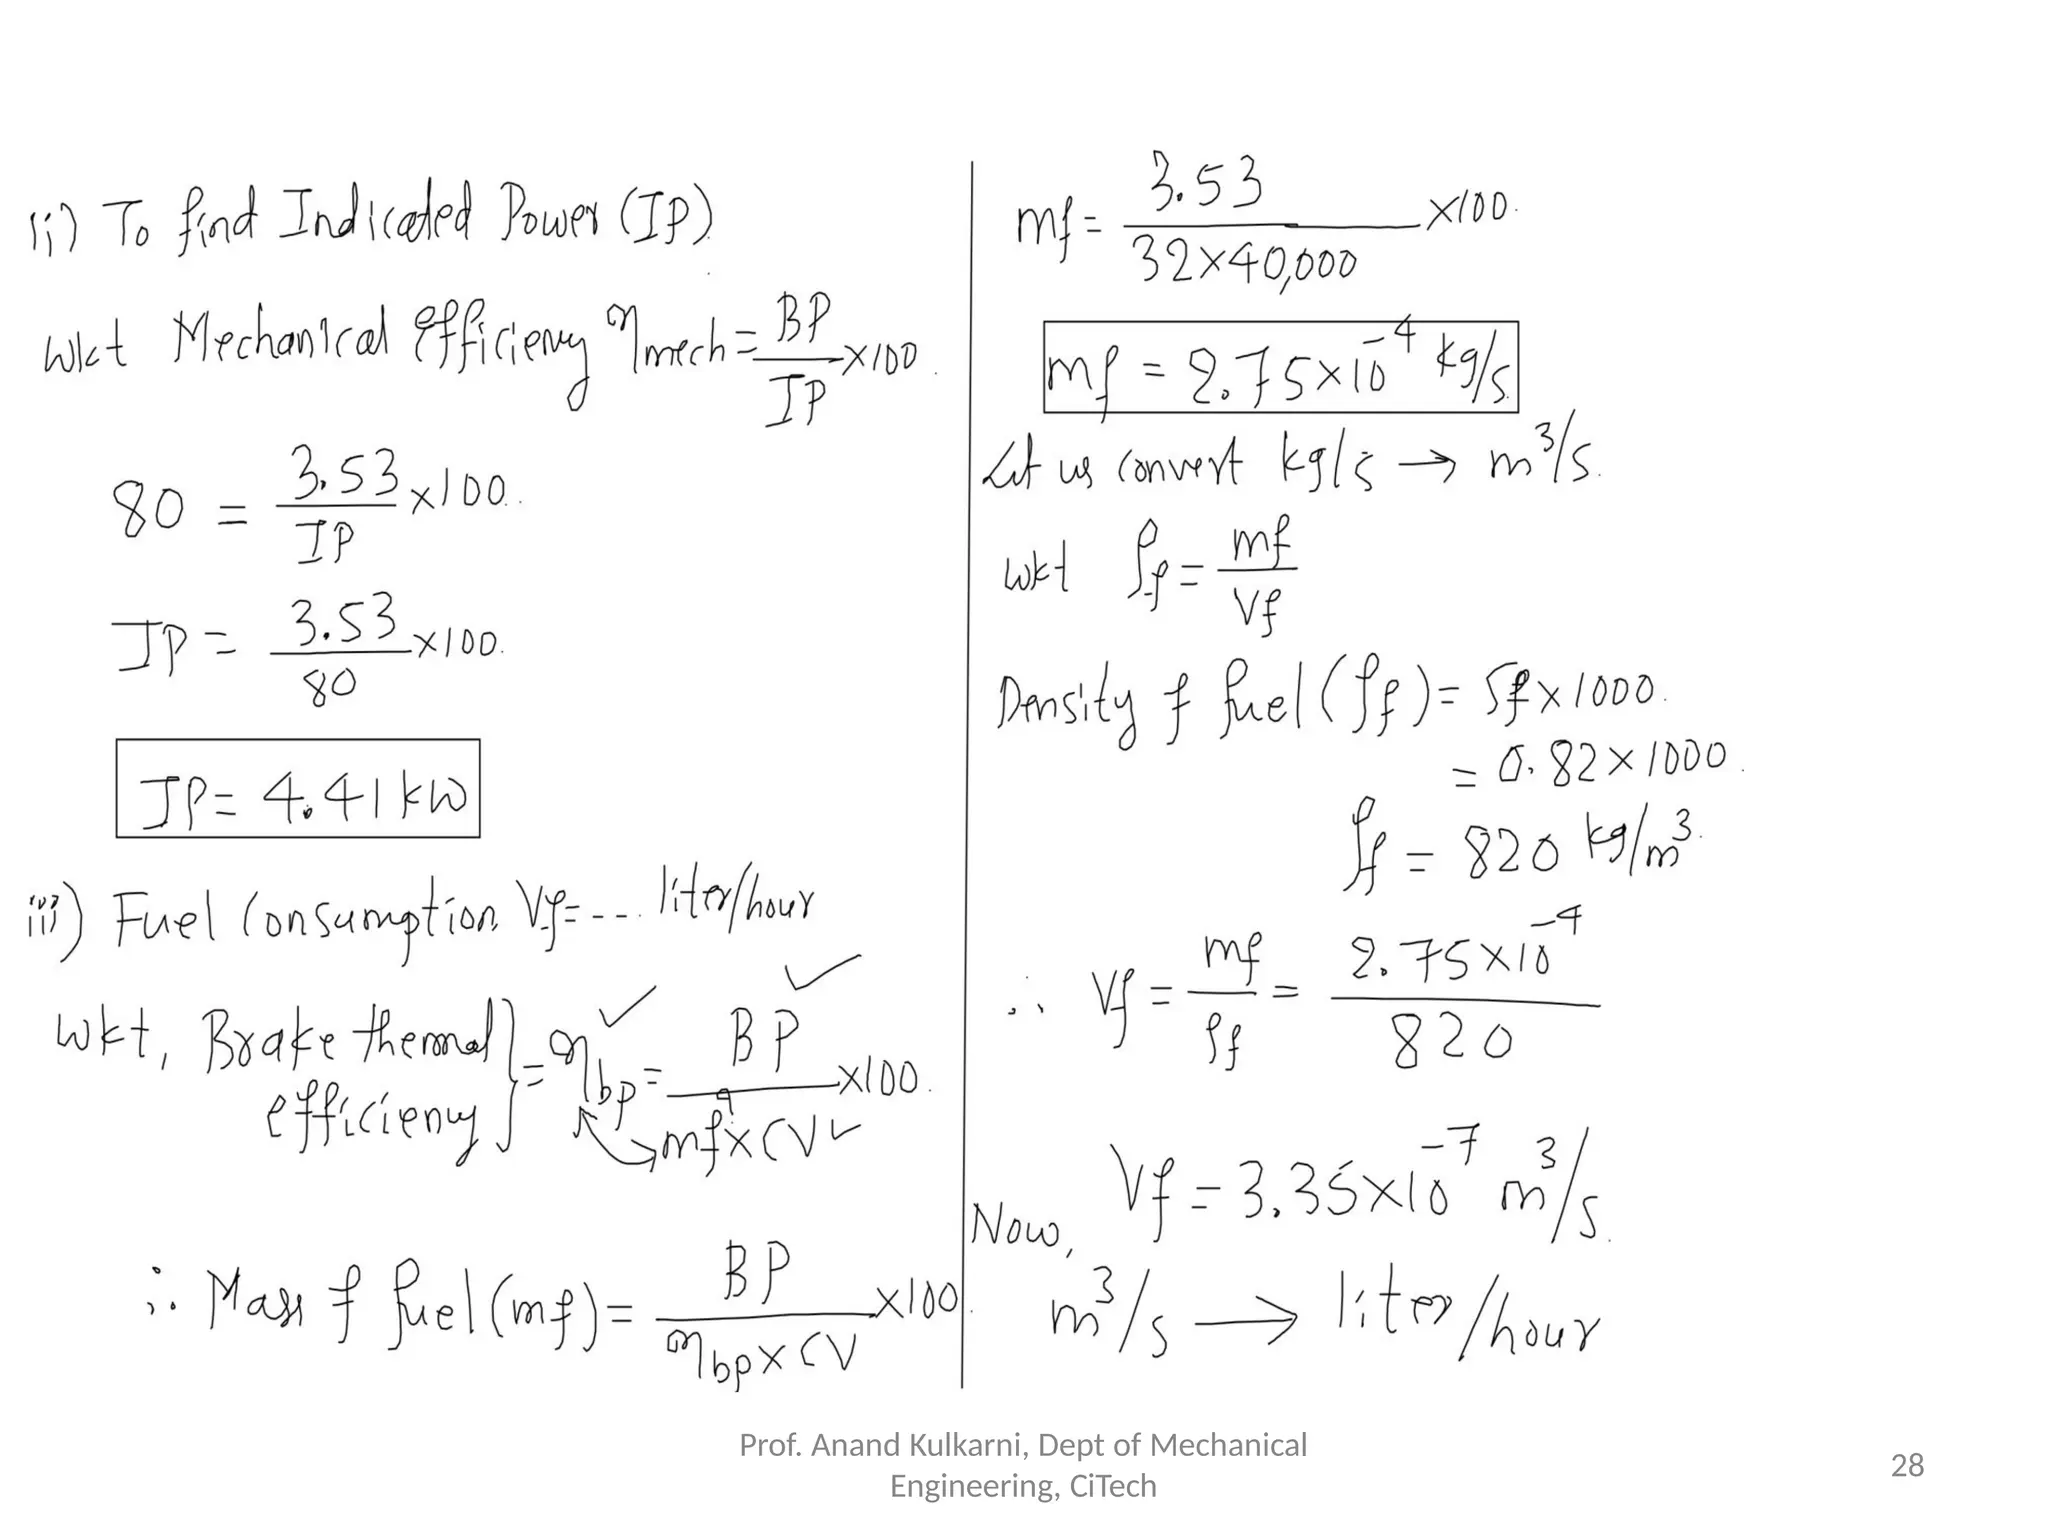 ii) To find Indicated Power (IP)
wkt Mechanical efficiency ηmech = BP/IP ×100.
80 = 3.53/IP ×100.
IP = 3.53/80 ×100.
IP = 4.41 kW
iii) Fuel Consumption Vf = --- liter/hour
wkt, Brake thermal efficiency } = ηbp = BP/(mf × CV) ×100.
∴ Mass of fuel (mf) = BP/(ηbp × CV) ×100.
mf = 3.53/(32×40,000) ×100.
mf = 2.75×10⁻⁴ kg/s.
Let us convert kg/s → m³/s.
wkt ρf = mf/Vf
Density of fuel (ρf) = Sf × 1000.
= 0.82 × 1000.
ρf = 820 kg/m³.
∴ Vf = mf/ρf = 2.75×10⁻⁴/820
Vf = 3.35×10⁻⁷ m³/s.
Now,
m³/s → liter/hour
Prof. Anand Kulkarni, Dept of Mechanical
Engineering, CiTech
28